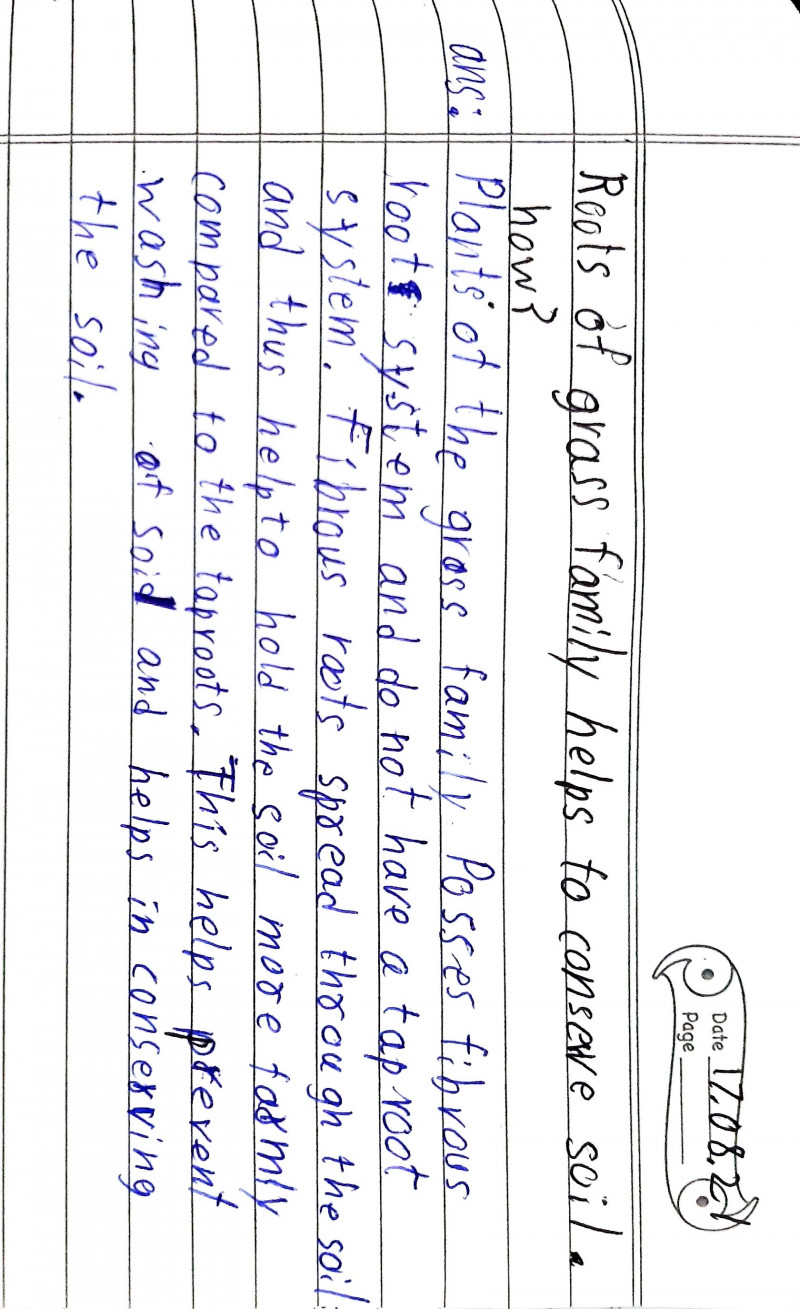 Date 17.08.24
Page
Roots of grass family helps to conseve soil.
how?
ans: Plants of the grass family. Posses fibrous
root system and do not have a tap root
system. Fibrous roots spread through the soil
and thus help to hold the soil more farmly
compared to the taproots. This helps prevent
washing of soil and helps in conserving
the soil.